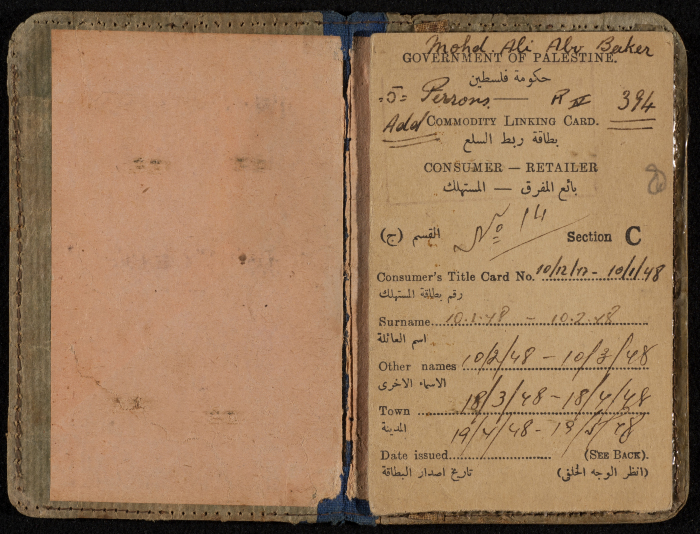 Mohd. Ali Abu Baker
GOVERNMENT OF PALESTINE.
حكومة فلسطين
=5= Perrons — R IV 394
Add COMMODITY LINKING CARD.
بطاقة ربط السلع
CONSUMER — RETAILER
بائع المفرق — المستهلك
القسم (ج) No 14 Section C
Consumer's Title Card No. 10/12/47 - 10/1/48
رقم بطاقة المستهلك
Surname 10.1.48 - 10.2.48
اسم العائلة
Other names 10/2/48 - 10/3/48
الاسماء الاخرى
Town 18/3/48 - 18/4/48
المدينة
19/4/48 - 19/5/48
Date issued (SEE BACK).
تاريخ اصدار البطاقة (انظر الوجه الخلفي)